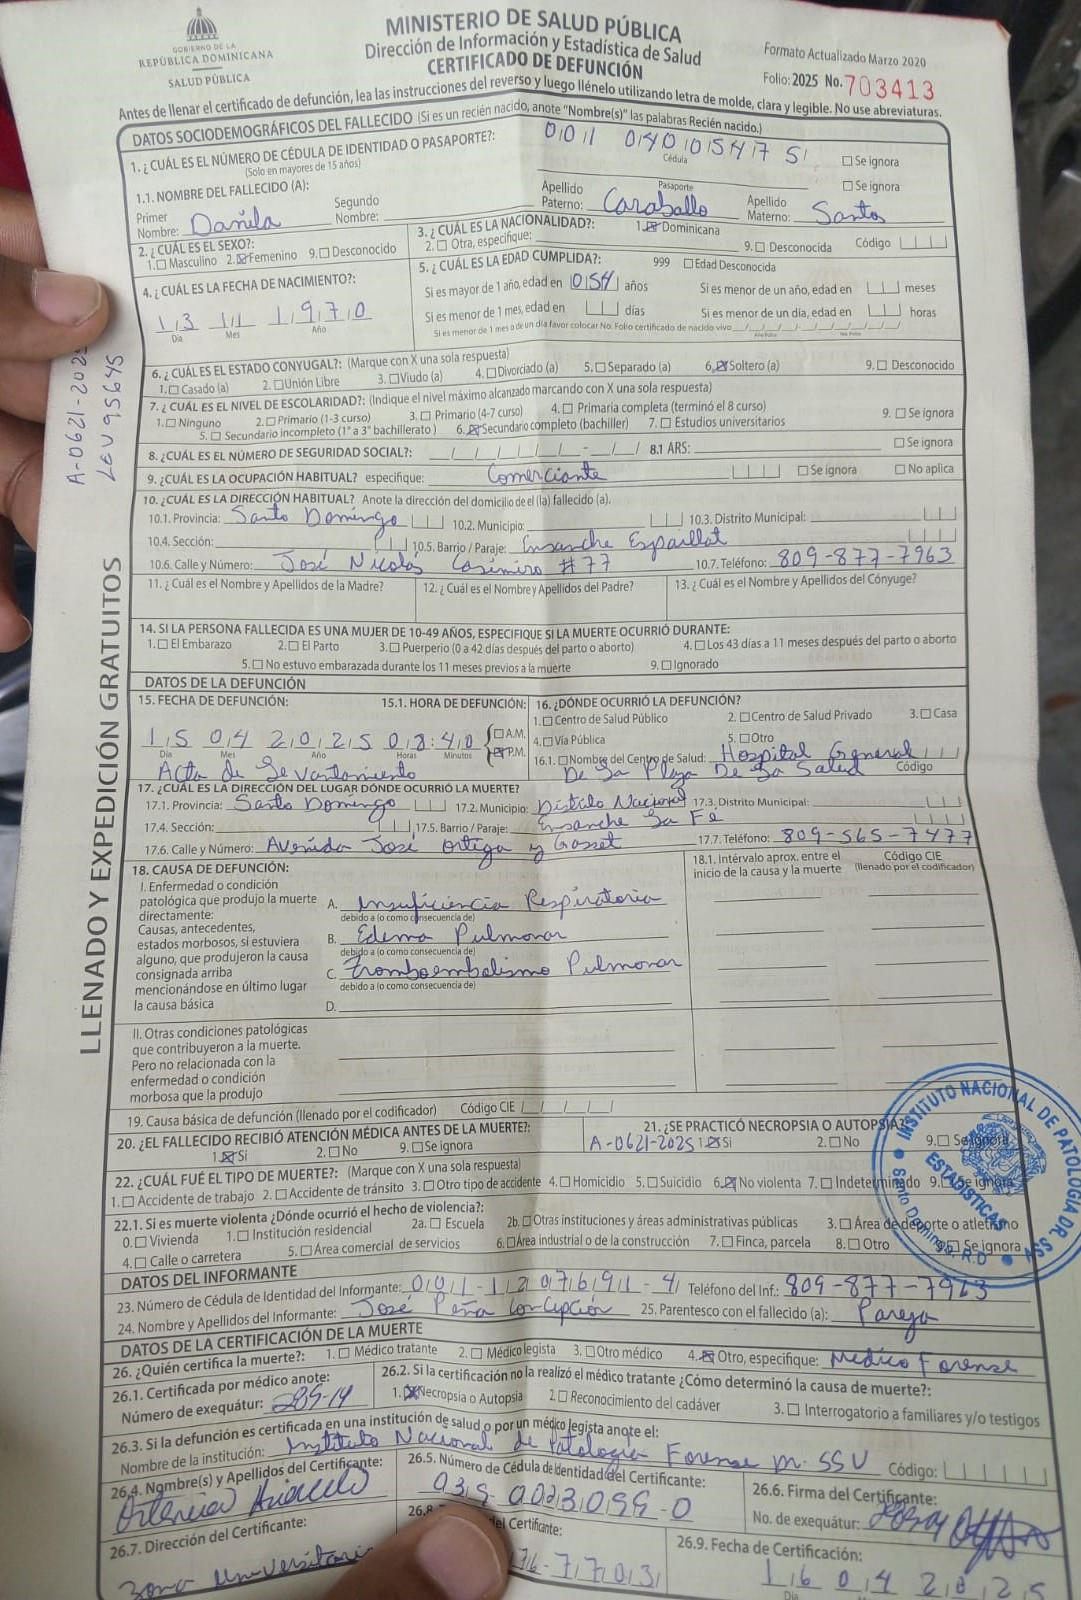 GOBIERNO DE LA
REPÚBLICA DOMINICANA
SALUD PÚBLICA
MINISTERIO DE SALUD PÚBLICA
Dirección de Información y Estadística de Salud
CERTIFICADO DE DEFUNCIÓN
Formato Actualizado Marzo 2020
Folio: 2025 No. 703413
Antes de llenar el certificado de defunción, lea las instrucciones del reverso y luego llénelo utilizando letra de molde, clara y legible. No use abreviaturas.
DATOS SOCIODEMOGRÁFICOS DEL FALLECIDO (Si es un recién nacido, anote "Nombre(s)" las palabras Recién nacido.)
1. ¿CUÁL ES EL NÚMERO DE CÉDULA DE IDENTIDAD O PASAPORTE?: 001 0401054 7 5 Cédula Se ignora
(Solo en mayores de 15 años) Pasaporte Se ignora
1.1. NOMBRE DEL FALLECIDO (A):
Primer Nombre: Danila Segundo Nombre: Apellido Paterno: Caraballo Apellido Materno: Santos
2. ¿CUÁL ES EL SEXO?: 3. ¿CUÁL ES LA NACIONALIDAD?: 1. Dominicana
1. Masculino 2. Femenino 9. Desconocido 2. Otra, especifique: 9. Desconocida Código
4. ¿CUÁL ES LA FECHA DE NACIMIENTO?: 5. ¿CUÁL ES LA EDAD CUMPLIDA?: 999 Edad Desconocida
Si es mayor de 1 año, edad en 054 años Si es menor de un año, edad en meses
13 11 1970 Si es menor de 1 mes, edad en días Si es menor de un día, edad en horas
Día Mes Año Si es menor de 1 mes o de un día favor colocar No. Folio certificado de nacido vivo
6. ¿CUÁL ES EL ESTADO CONYUGAL?: (Marque con X una sola respuesta)
1. Casado (a) 2. Unión Libre 3. Viudo (a) 4. Divorciado (a) 5. Separado (a) 6. Soltero (a) 9. Desconocido
7. ¿CUÁL ES EL NIVEL DE ESCOLARIDAD?: (Indique el nivel máximo alcanzado marcando con X una sola respuesta)
1. Ninguno 2. Primario (1-3 curso) 3. Primario (4-7 curso) 4. Primaria completa (terminó el 8 curso) 9. Se ignora
5. Secundario incompleto (1° a 3° bachillerato) 6. Secundario completo (bachiller) 7. Estudios universitarios
8. ¿CUÁL ES EL NÚMERO DE SEGURIDAD SOCIAL?: 8.1 ARS: Se ignora
9. ¿CUÁL ES LA OCUPACIÓN HABITUAL? especifique: Comerciante Se ignora No aplica
10. ¿CUÁL ES LA DIRECCIÓN HABITUAL? Anote la dirección del domicilio de el (la) fallecido (a).
10.1. Provincia: Santo Domingo 10.2. Municipio: 10.3. Distrito Municipal:
10.4. Sección: 10.5. Barrio / Paraje: Ensanche Espaillat
10.6. Calle y Número: José Nicolas Casimiro #77 10.7. Teléfono: 809-877-7963
11. ¿Cuál es el Nombre y Apellidos de la Madre? 12. ¿Cuál es el Nombre y Apellidos del Padre? 13. ¿Cuál es el Nombre y Apellidos del Cónyuge?
14. SI LA PERSONA FALLECIDA ES UNA MUJER DE 10-49 AÑOS, ESPECIFIQUE SI LA MUERTE OCURRIÓ DURANTE:
1. El Embarazo 2. El Parto 3. Puerperio (0 a 42 días después del parto o aborto) 4. Los 43 días a 11 meses después del parto o aborto
5. No estuvo embarazada durante los 11 meses previos a la muerte 9. Ignorado
DATOS DE LA DEFUNCIÓN
15. FECHA DE DEFUNCIÓN: 15.1. HORA DE DEFUNCIÓN: 16. ¿DÓNDE OCURRIÓ LA DEFUNCIÓN?
1. Centro de Salud Público 2. Centro de Salud Privado 3. Casa
15 04 2025 08:40 A.M. P.M. 4. Vía Pública 5. Otro
Día Mes Año Horas Minutos 16.1. Nombre del Centro de Salud: Hospital General
Acta de Levantamiento De La Plaza De La Salud Código
17. ¿CUÁL ES LA DIRECCIÓN DEL LUGAR DÓNDE OCURRIÓ LA MUERTE?
17.1. Provincia: Santo Domingo 17.2. Municipio: Distrito Nacional 17.3. Distrito Municipal:
17.4. Sección: 17.5. Barrio / Paraje: Ensanche La Fé
17.6. Calle y Número: Avenida José Ortega y Gasset 17.7. Teléfono: 809-565-7477
18. CAUSA DE DEFUNCIÓN: 18.1. Intérvalo aprox. entre el inicio de la causa y la muerte Código CIE (llenado por el codificador)
I. Enfermedad o condición
patológica que produjo la muerte
directamente: A. Insuficiencia Respiratoria
debido a (o como consecuencia de)
Causas, antecedentes,
estados morbosos, si estuviera B. Edema Pulmonar
debido a (o como consecuencia de)
alguno, que produjeron la causa
consignada arriba C. Tromboembolismo Pulmonar
debido a (o como consecuencia de)
mencionándose en último lugar
la causa básica D.
II. Otras condiciones patológicas
que contribuyeron a la muerte.
Pero no relacionada con la
enfermedad o condición
morbosa que la produjo
19. Causa básica de defunción (llenado por el codificador) Código CIE
20. ¿EL FALLECIDO RECIBIÓ ATENCIÓN MÉDICA ANTES DE LA MUERTE?: 21. ¿SE PRACTICÓ NECROPSIA O AUTOPSIA?
1. Si 2. No 9. Se ignora A-0621-2025 1. Si 2. No 9. Se ignora
22. ¿CUÁL FUÉ EL TIPO DE MUERTE?: (Marque con X una sola respuesta)
1. Accidente de trabajo 2. Accidente de tránsito 3. Otro tipo de accidente 4. Homicidio 5. Suicidio 6. No violenta 7. Indeterminado 9. Se ignora
22.1. Si es muerte violenta ¿Dónde ocurrió el hecho de violencia?:
0. Vivienda 1. Institución residencial 2a. Escuela 2b. Otras instituciones y áreas administrativas públicas 3. Área de deporte o atletismo
4. Calle o carretera 5. Área comercial de servicios 6. Área industrial o de la construcción 7. Finca, parcela 8. Otro Se ignora
DATOS DEL INFORMANTE
23. Número de Cédula de Identidad del Informante: 001-1207691-4 Teléfono del Inf.: 809-877-7963
24. Nombre y Apellidos del Informante: José Peña Concepción 25. Parentesco con el fallecido (a): Pareja
DATOS DE LA CERTIFICACIÓN DE LA MUERTE
26. ¿Quién certifica la muerte?: 1. Médico tratante 2. Médico legista 3. Otro médico 4. Otro, especifique: Médico Forense
26.1. Certificada por médico anote: 26.2. Si la certificación no la realizó el médico tratante ¿Cómo determinó la causa de muerte?:
Número de exequátur: 289-14 1. Necropsia o Autopsia 2. Reconocimiento del cadáver 3. Interrogatorio a familiares y/o testigos
26.3. Si la defunción es certificada en una institución de salud o por un médico legista anote el:
Nombre de la institución: Instituto Nacional de Patología Forense Código:
26.4. Nombre(s) y Apellidos del Certificante: 26.5. Número de Cédula de Identidad del Certificante: 26.6. Firma del Certificante:
No. de exequátur:
26.7. Dirección del Certificante: 26.8 del Certificante: 26.9. Fecha de Certificación:
Zona Universitaria 76-7703 16 04 2025
Día
LLENADO Y EXPEDICIÓN GRATUITOS
A-0621-2025
LEV 95645
INSTITUTO NACIONAL DE PATOLOGIA DR. SSV
ESTADISTICAS
Santo Domingo, R.D